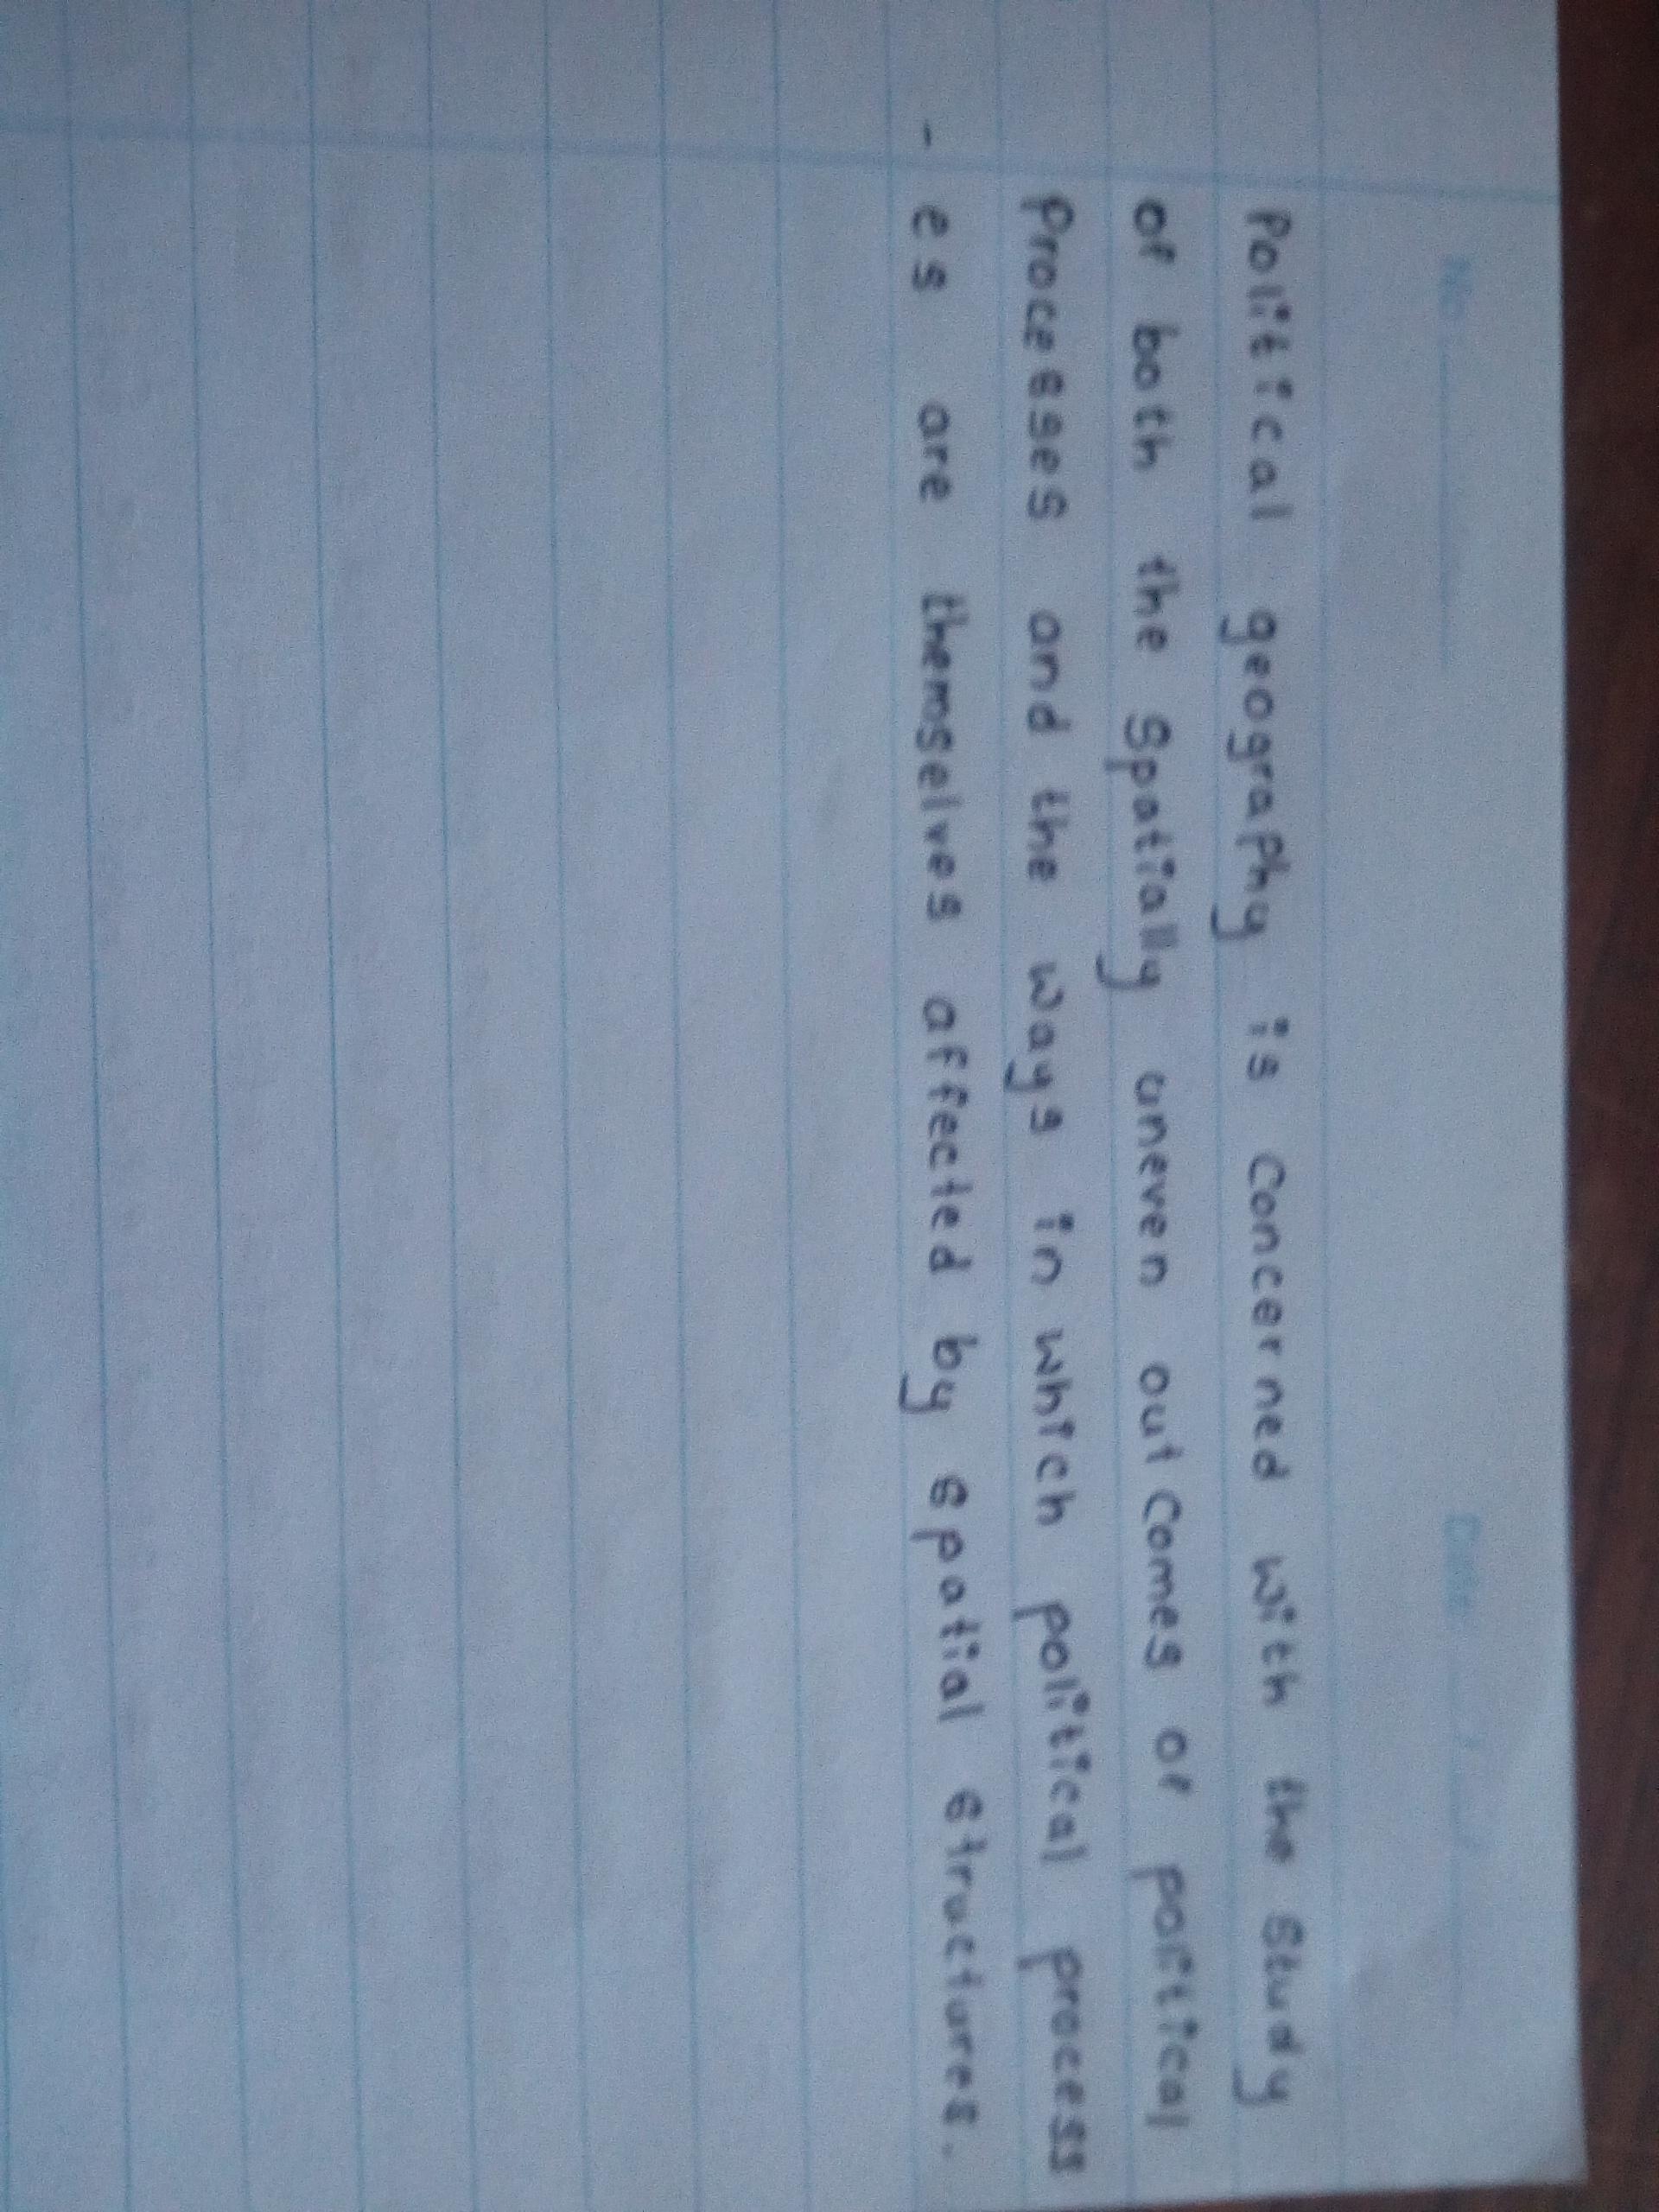 No
Date
Political geography is concerned with the study
of both the spatially uneven outcomes of political
processes and the ways in which political process
- es are themselves affected by spatial structures.